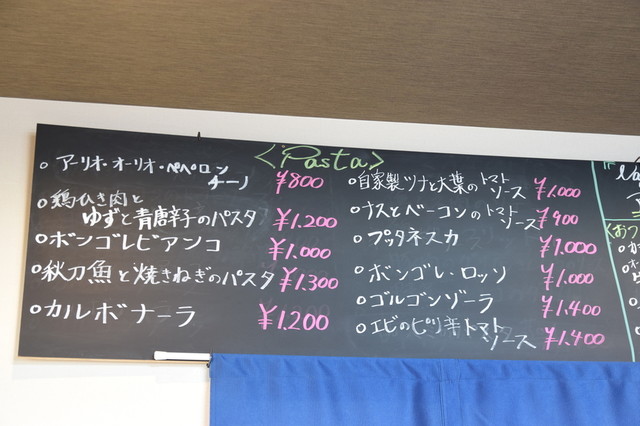 <Pasta>
○アーリオ・オーリオ・ペペロン
チーノ ¥800
○鶏ひき肉と
ゆずと青唐辛子のパスタ ¥1.200
○ボンゴレビアンコ ¥1.000
○秋刀魚と焼きねぎのパスタ ¥1.300
○カルボナーラ ¥1.200
○自家製ツナと大葉のトマト
ソース ¥1.000
○ナスとベーコンのトマト
ソース ¥900
○プッタネスカ ¥1.000
○ボンゴレ・ロッソ ¥1.000
○ゴルゴンゾーラ ¥1.400
○エビのピリ辛トマト
ソース ¥1.400